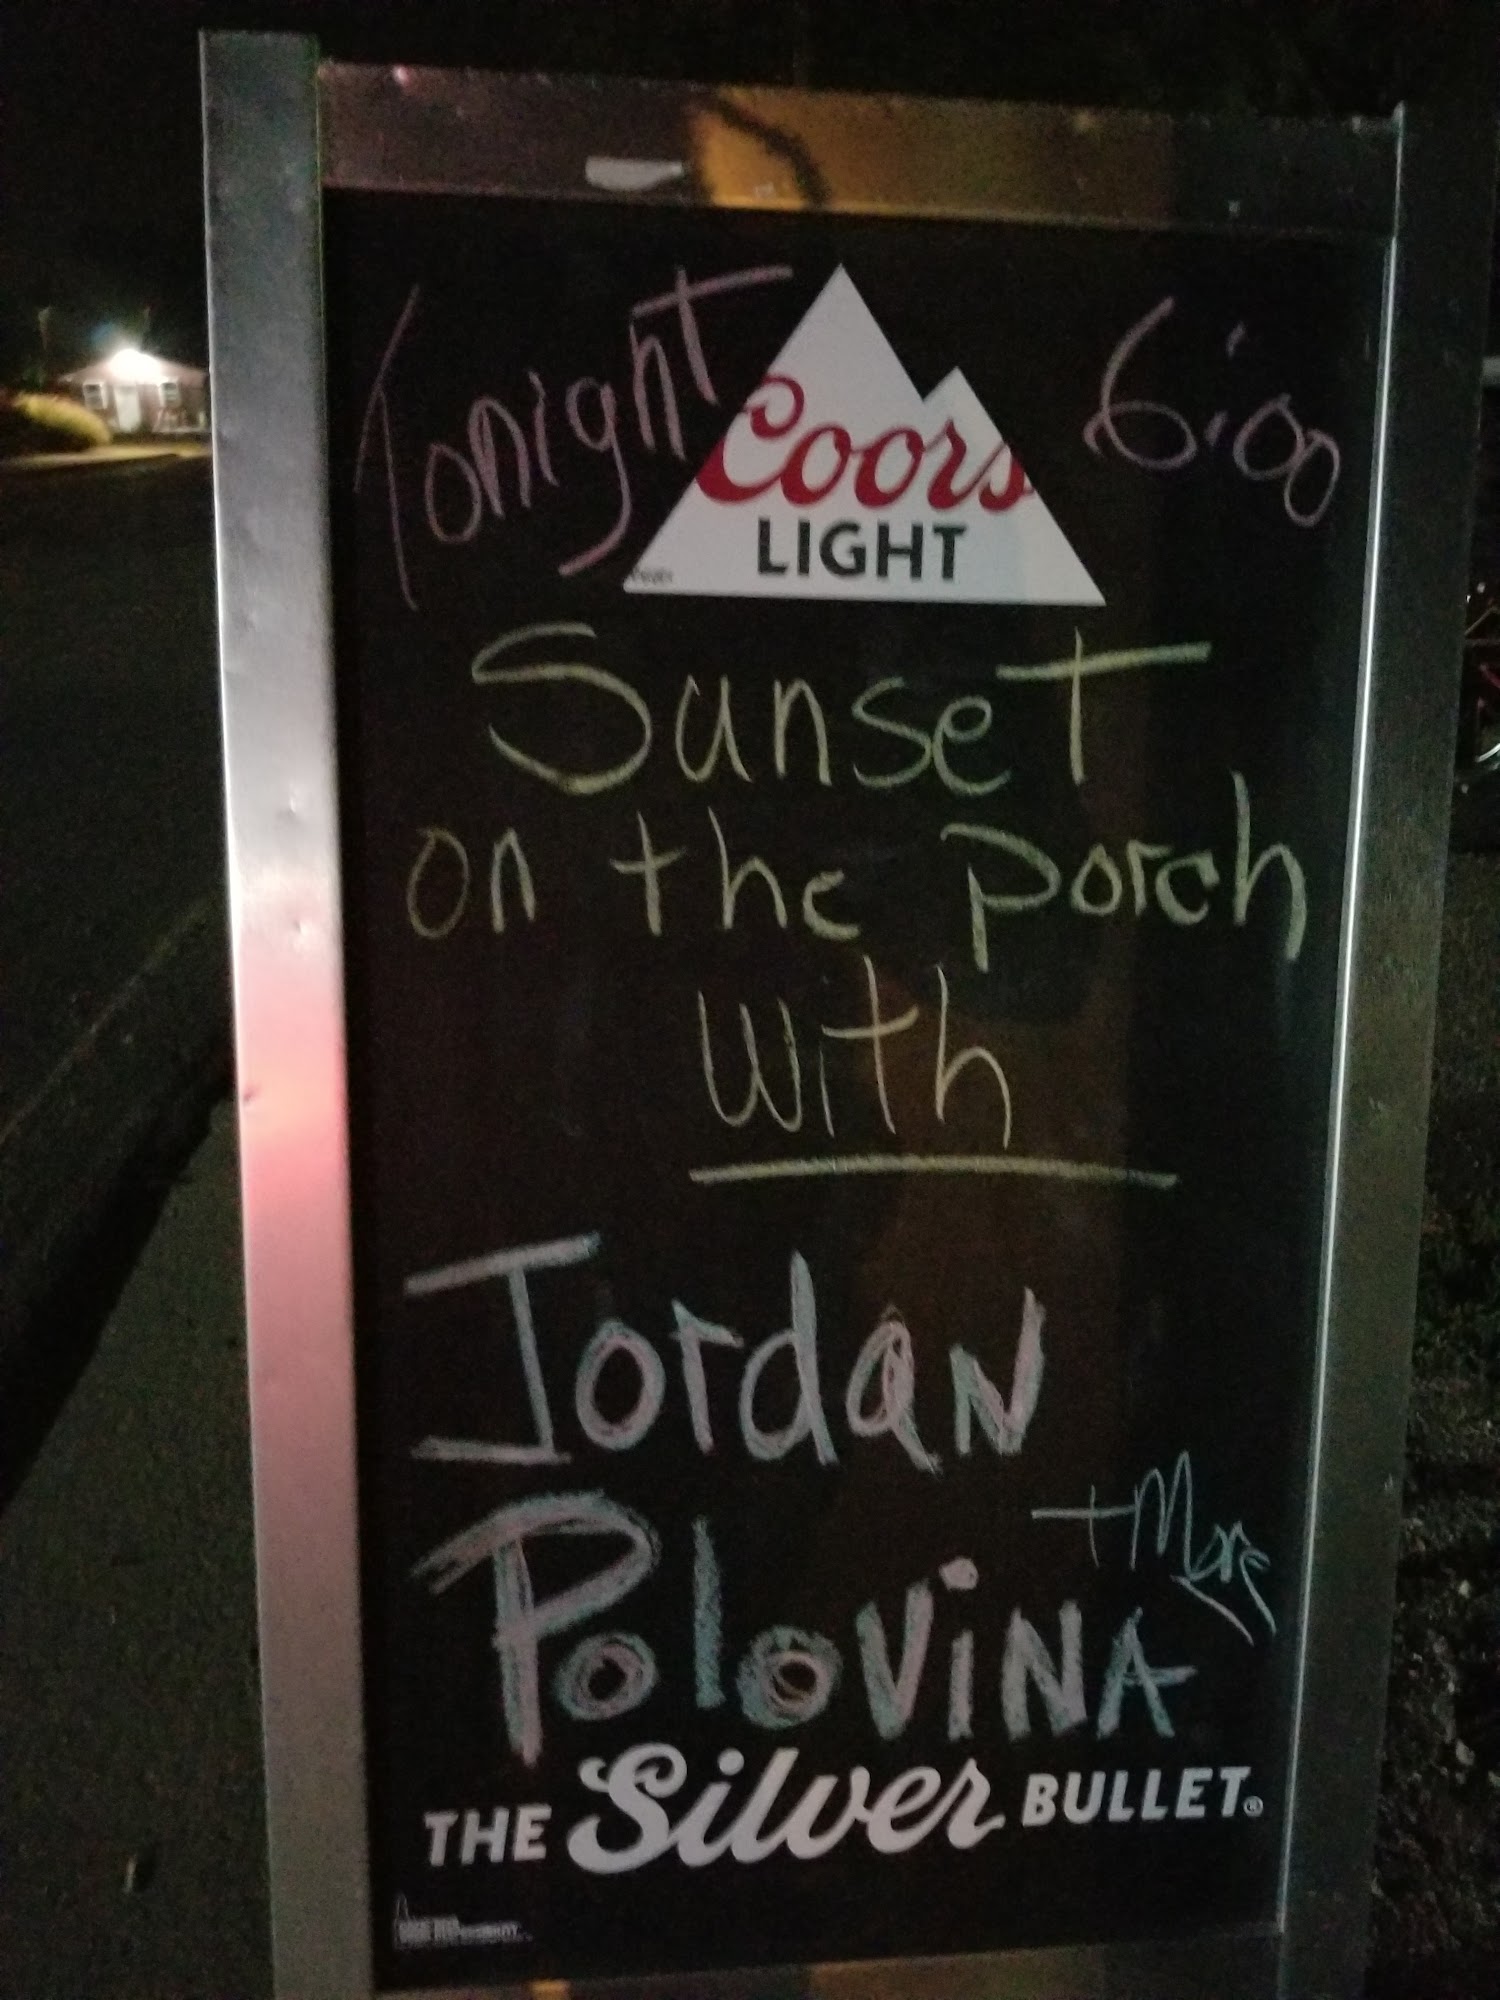 Tonight 6:00
Coors
LIGHT
Sunset
on the porch
with
Jordan
+ More
Polovina
THE Silver BULLET®